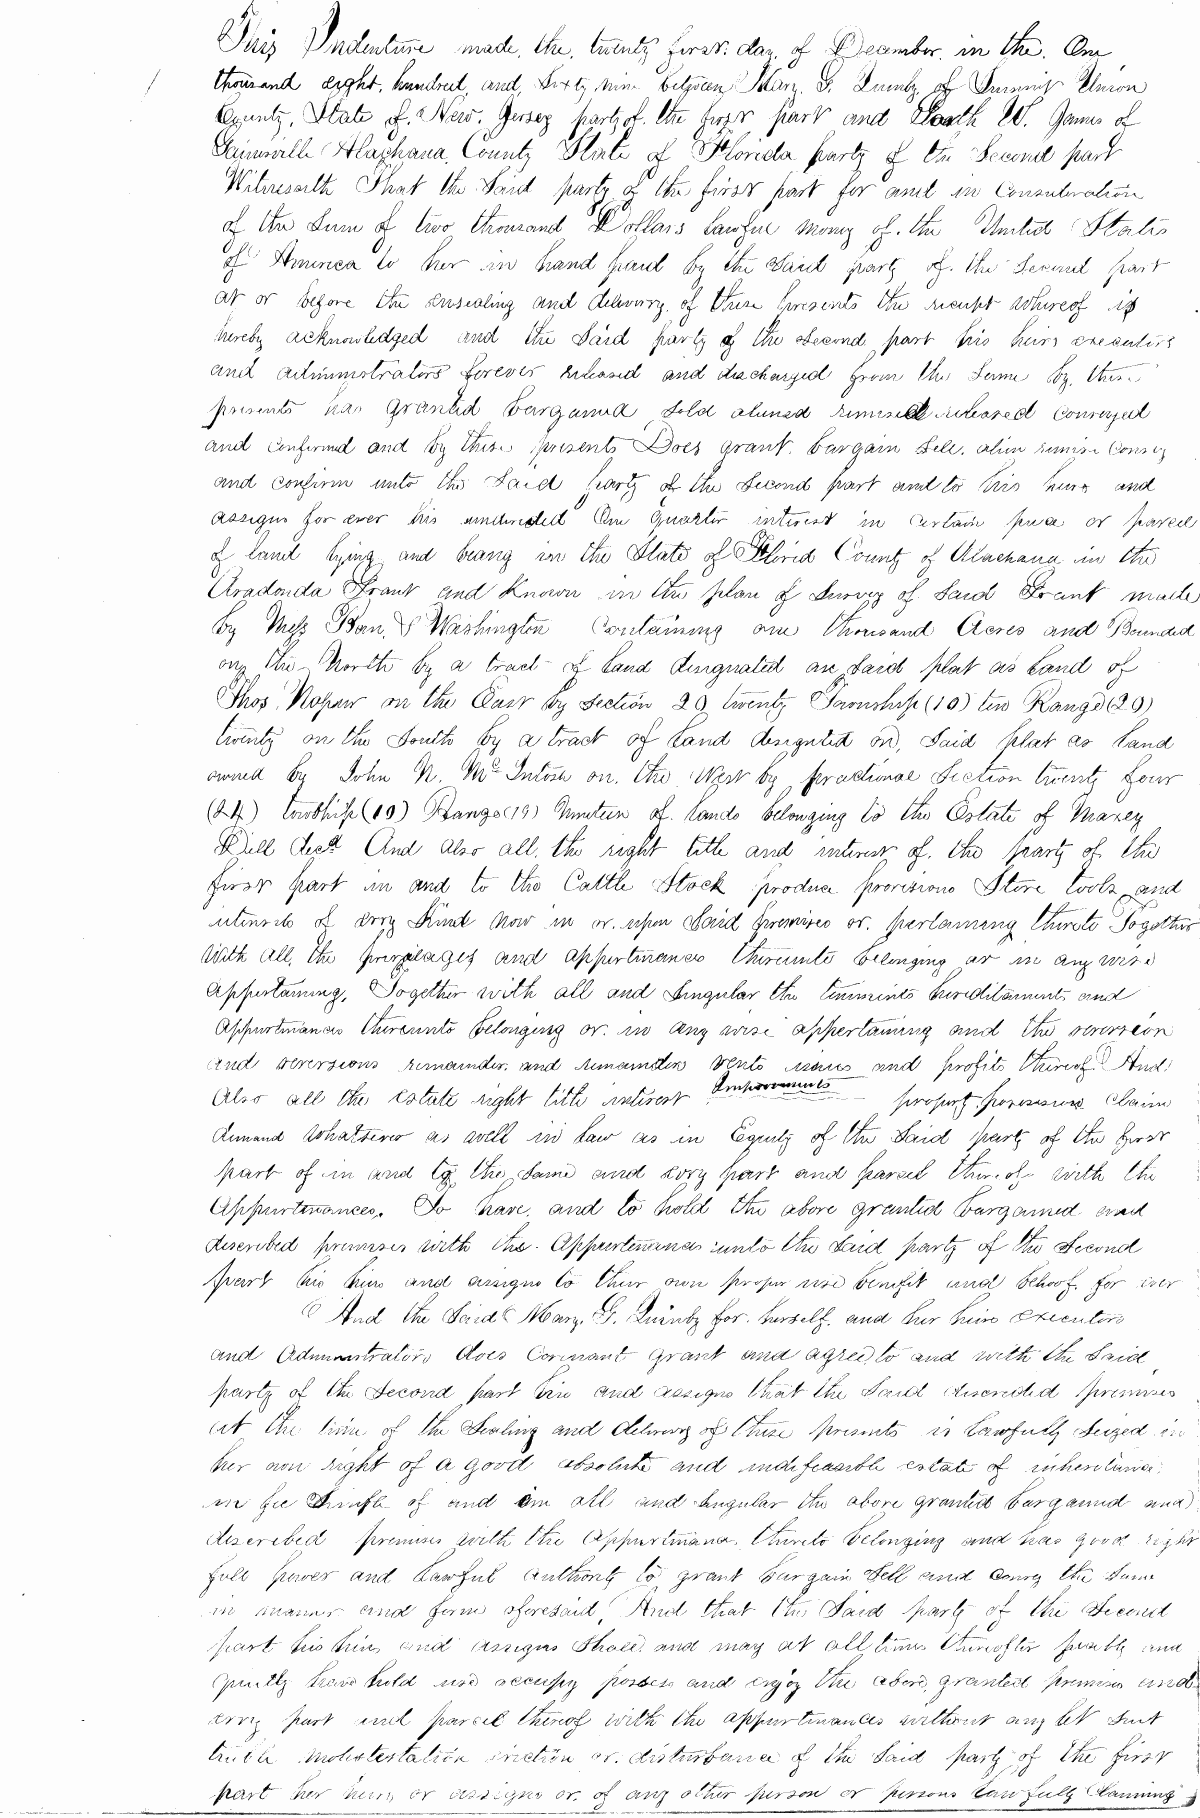 This Indenture made, the, twenty first. day, of December, in the. One
thousand eight, hundred, and, Sixty nine between Mary. G. Quinby of Summit Union
County, State of. New. Jersey party of. the first part and W. James of
Gainsville Alachana, County State of Florida party of the Second part
Witnesseth That the Said party of the first part for and in Consideration
of the Sum of two thousand Dollars Lawful money of. the United States
of America to her in hand paid by the Said party of. the Second part
at or before the ensealing and delivery of these presents the receipt whereof is
hereby acknowledged and the Said party of the Second part his heirs executors
and administrators forever released and discharged from the Same by, these
presents has granted bargained Sold aliened remised released conveyed
and confirmed and by these presents Does grant. bargain Sell. alien remise Convey
and confirm unto the Said party of the Second part and to his heirs and
assigns for ever his undivided One quarter interest in certain piece or parcel
of land lying and being in the State of Florid County of Alachana in the
Aradonda Grant and Known in the plan of Survey of Said Grant made
by Mess & Washington Containing one thousand Acres and Bounded
on the North by a tract of Land designated on Said plat as Land of
Thos on the East by Section 20 twenty Township (10) ten Range (20)
twenty on the South by a tract of Land designted on, Said plat as Land
owned by John N. McIntosh on. the West by fractional Section twenty four
(24) township (10) Range (19) Nineteen of. lands belonging to the Estate of Maxey
Dell decd. And Also all. the right title and interest of. the party of. the
first part in and to the Cattle Stock produce provisions Store tools and
utensils of evry Kind Now in or. upon Said premises or. pertaining thereto Together
with all, the privilages and appurtinances thereunto belonging or in any wise
Appertaining, Together with all and Singular the tenements hereditaments and
Appurtinances thereunto belonging or. in any wise appertaining and the reversion
and reversions remainder. and remainders rents issues and profits thereof And
Also all the Estate right title interest Improvements propert. possession Claim
demand Whatsever as well in Law as in Equity of the Said party of the first
part of in and to the Same and evry part and parcel thereof with the
Appurtenances. To have, and to hold the above granted bargained and
described premises with the. Appurtenances unto the Said party of the Second
part his heirs and assigns to their own proper use benefit and behoof. for ever
And the Said Mary. G. Quinby for. herself. and her heirs executors
and Administrators does Covenant grant and agree to and with the Said
party of the Second part heirs and assigns that the Said described premises
at the time of the Sealing and delivery of these presents is Lawfully Seized in
her own right of a good absolute and indefeasible estate of inheritance
in fee Simple of and in all and Singular the above granted bargained and
described premises with the Appurtinance. thereto belonging and has good right
full power and Lawful authority to grant bargain Sell and convey the Same
in manner and form aforesaid, And that the Said party of the Second
part his heirs and assigns Shall and may at all times thereafter peacbly and
quietly have hold use occupy possess and enjoy the above, granted premises and
evry part and parcel thereof with the appurtinances without any let Suit
truble molestestation eviction or. disturbance of the Said party of the first
part her heirs or assigns or. of any other person or persons Lawfully Claiming